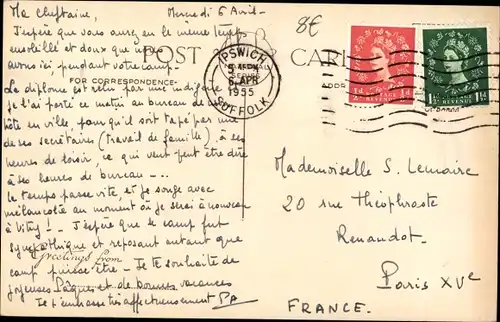 Ma cheftaine, Mercredi 6 Avril -
J'espère que vous aurez eu le même temps
ensoleillé et doux que nous
avons ici, pendant votre camp.
POST CARD
FOR CORRESPONDENCE
ADDR
Le diplôme est
je l'ai porté ce matin au bureau de
en ville pour qu'il soit tapé par une
de ses secrétaires (travail de famille) à ses
heures de loisir, ce qui veut peut être dire
à ses heures de bureau —
le temps passe vite, et je songe avec
mélancolie au moment où je serai à nouveau
à Vitry ! — J'espère que le camp fut
sympathique et reposant autant que
Greetings from
camp puisse être — Je te souhaite de
joyeuses Pâques et de bonnes vacances
Je t'embrasse très affectueusement PA
8€
IPSWICH
6 APR
1955
SUFFOLK
½d REVENUE ½d
1½d REVENUE 1½d
Mademoiselle S. Lemaire
20 rue Théophraste
Renaudot.
Paris XVe
FRANCE.